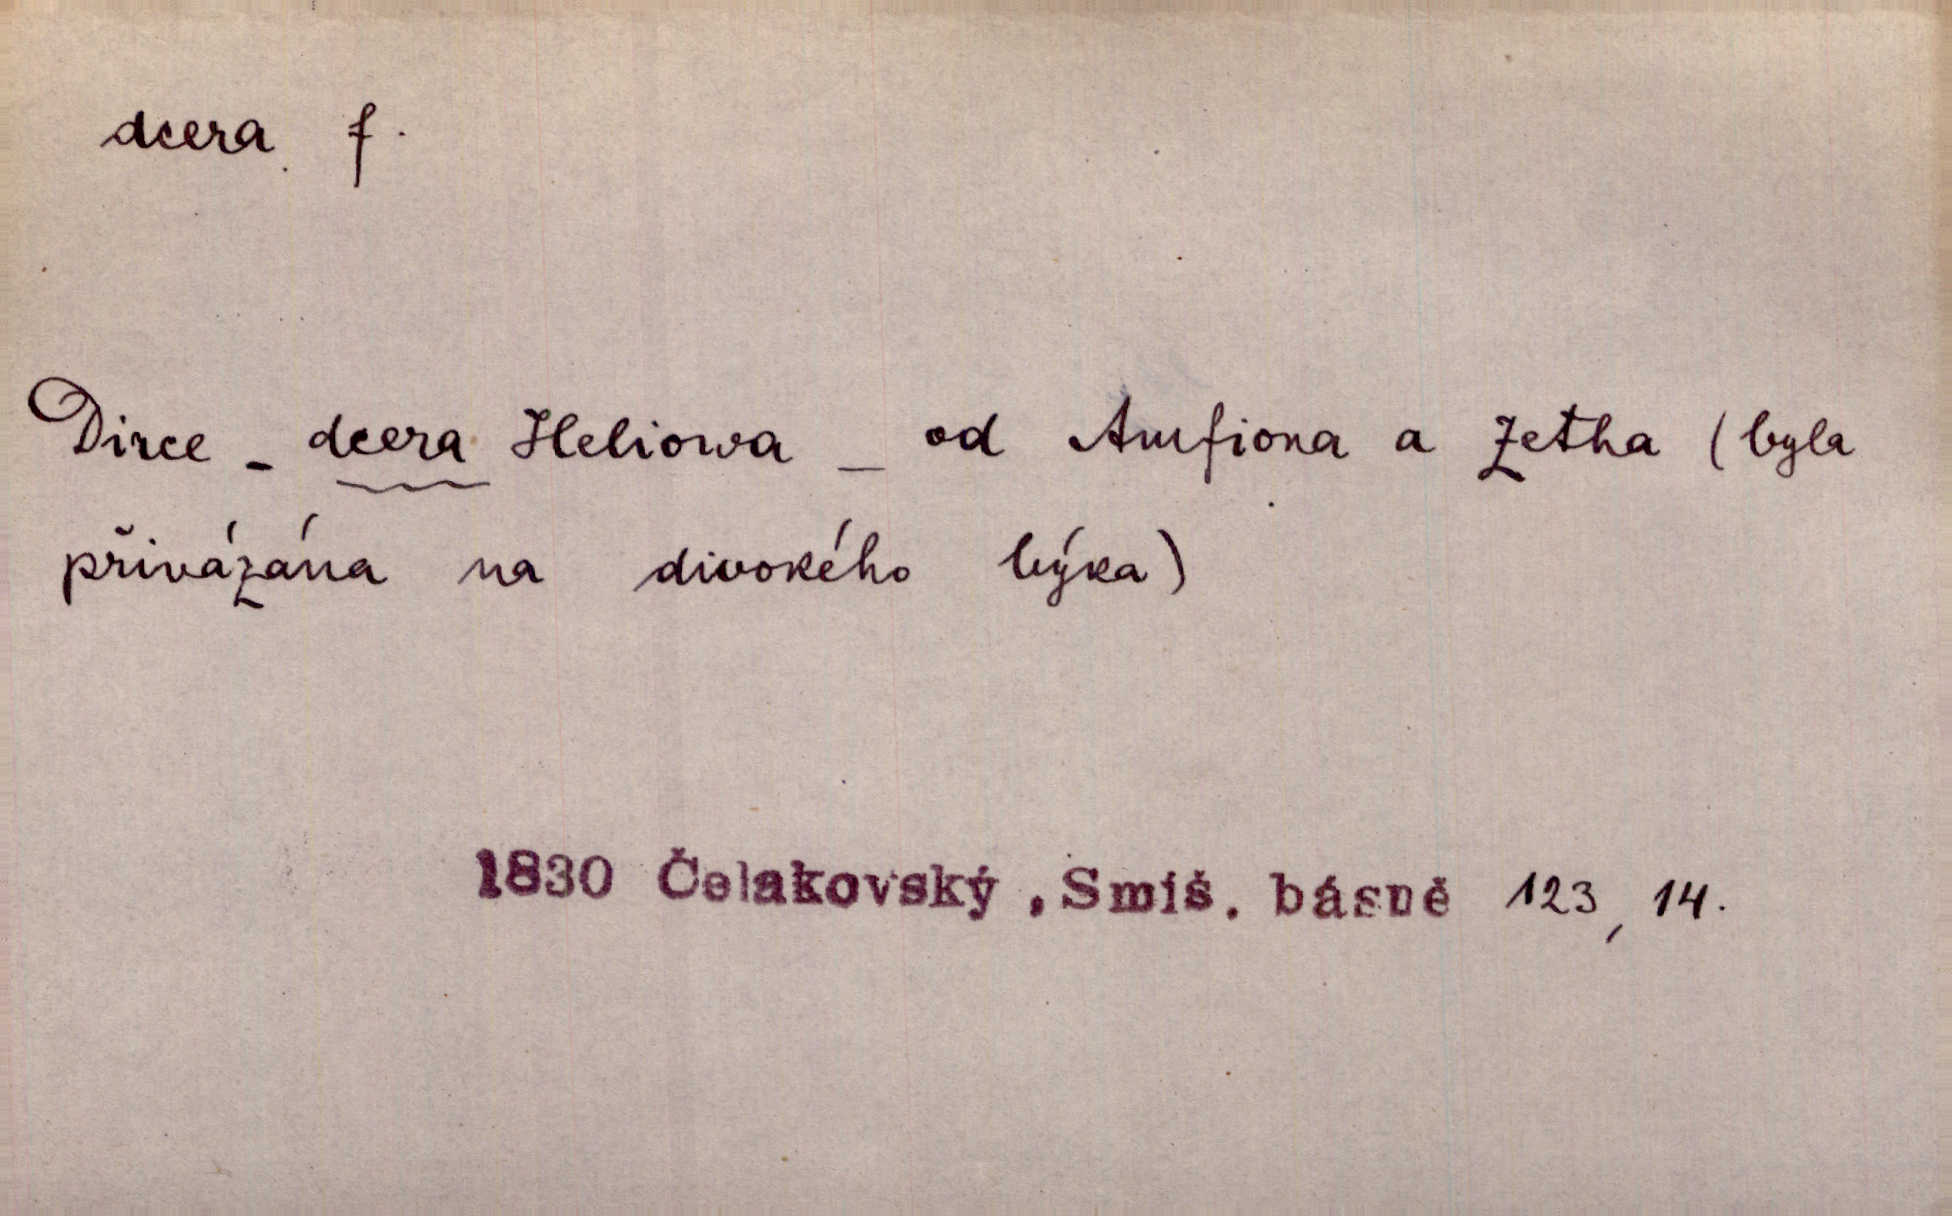 dcera f.
Dirce – dcera Heliowa – od Amfiona a Zetha (byla
přivázána na divokého býka)
1830 Čelakovský, Smíš. básně 123, 14.